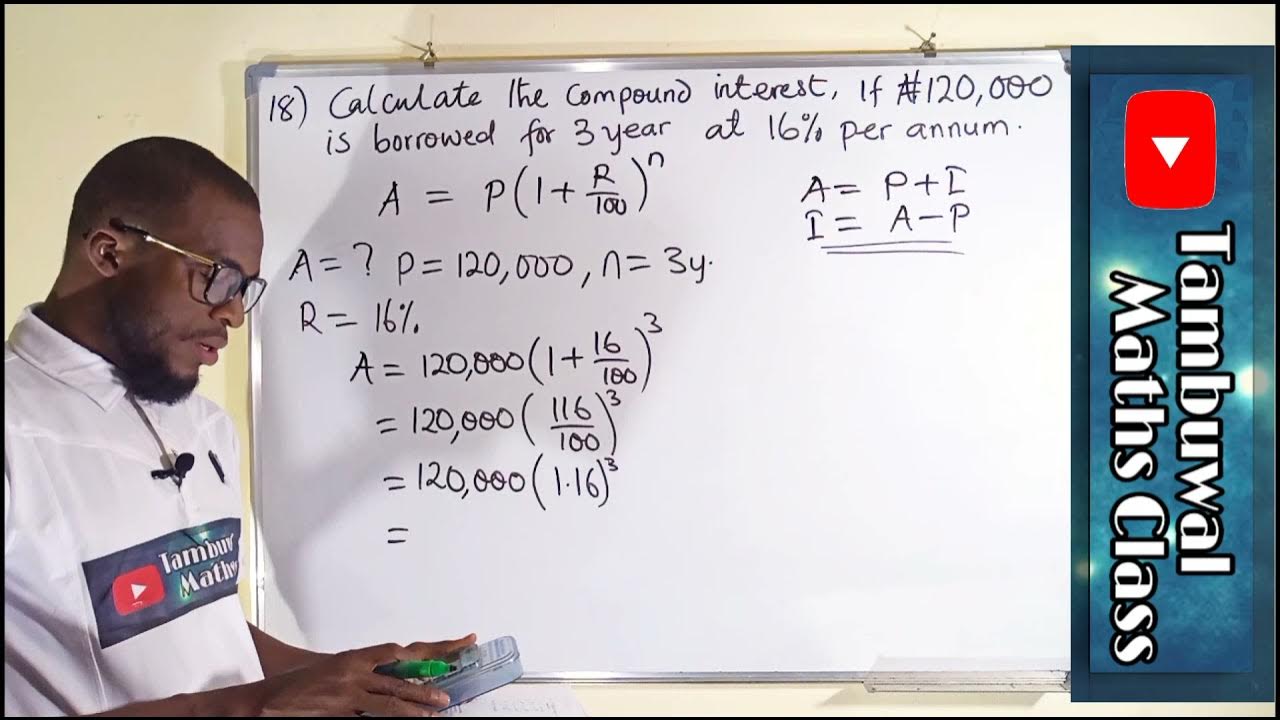 18) Calculate the compound interest, If ₦120,000
is borrowed for 3 year at 16% per annum.
A = P(1 + R/100)^n
A = P + I
I = A - P
A = ? P = 120,000, n = 3y.
R = 16%
A = 120,000(1 + 16/100)^3
= 120,000(116/100)^3
= 120,000(1.16)^3
=
Tambuwal
Maths Class
Tambuw
Maths